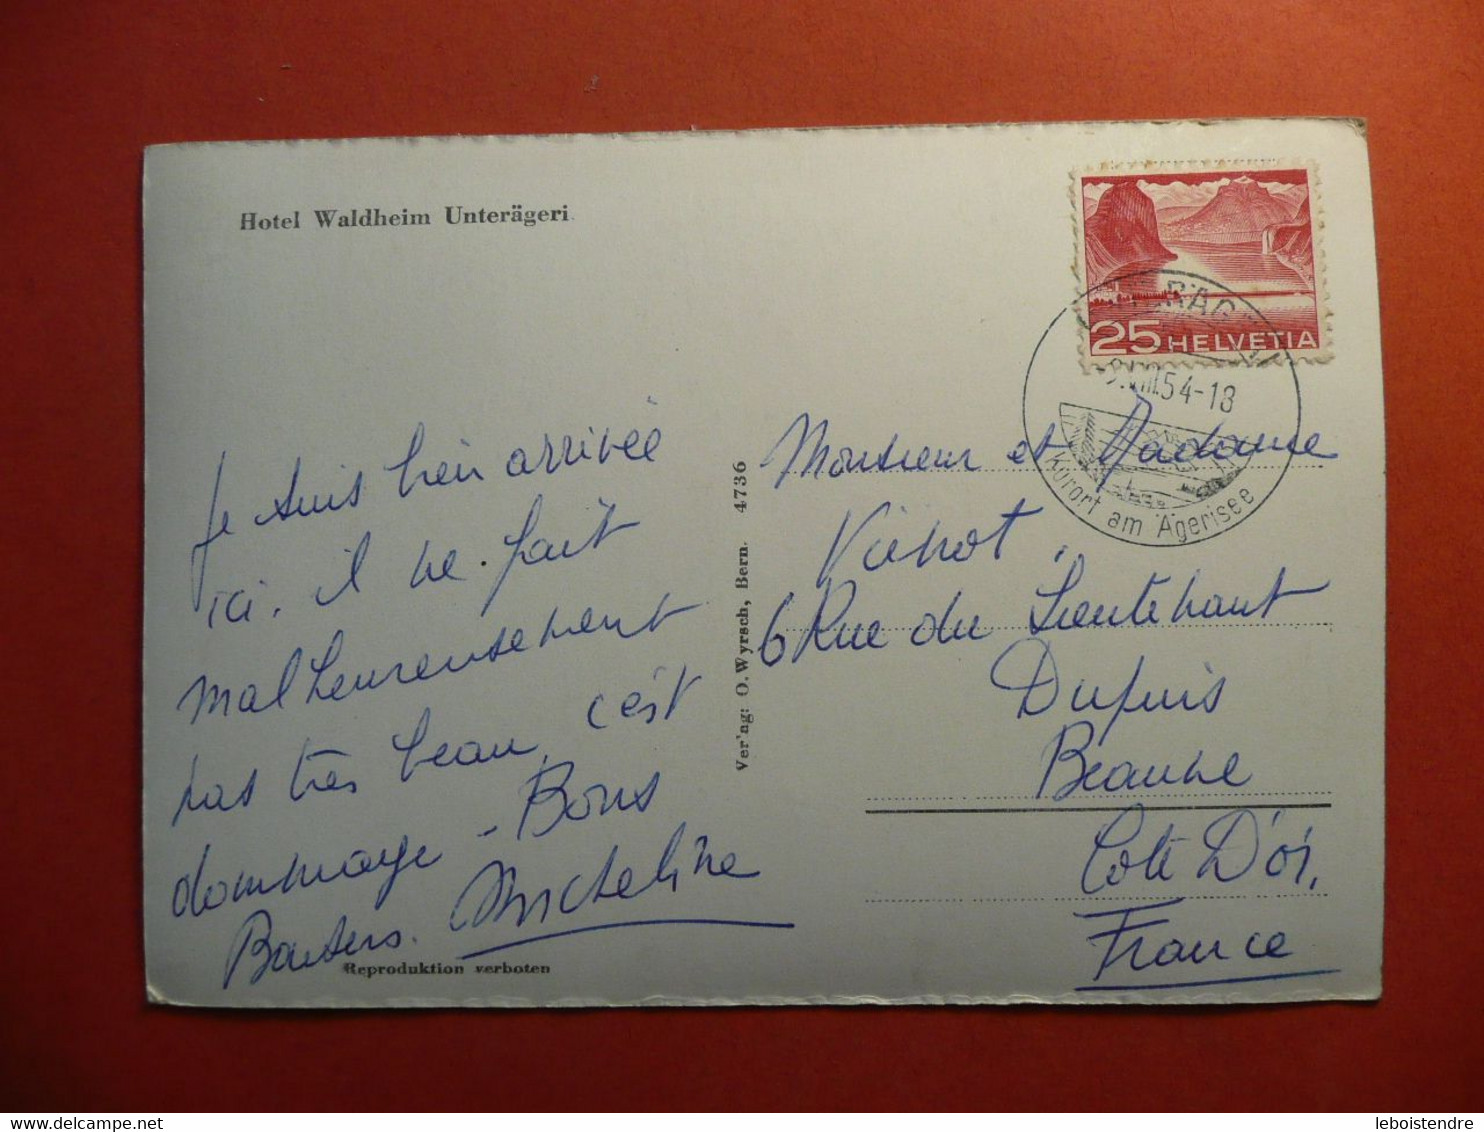 Hotel Waldheim Unterägeri
25 HELVETIA
VIII.54-18
Kurort am Ägerisee
Je suis bien arrivée
ici, il ne fait
malheureusement
pas très beau, c'est
dommage - Bons
Baisers. Micheline
Reproduktion verboten
Ver'ag: O. Wyrsch, Bern. 4736
Monsieur et Madame
Vienot
6 Rue du Lieutenant
Dupuis
Beaune
Cote D'or.
France
leboistendre.delcampe.net
leboistendre